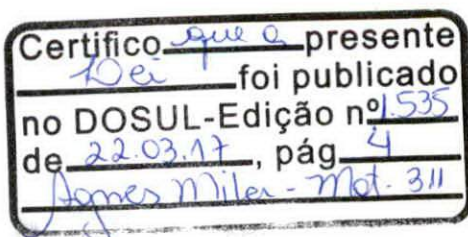 Certifico que a presente
Lei foi publicado
no DOSUL-Edição nº 1.535
de 22.03.17, pág 4
Agnes Miler - Mat. 311